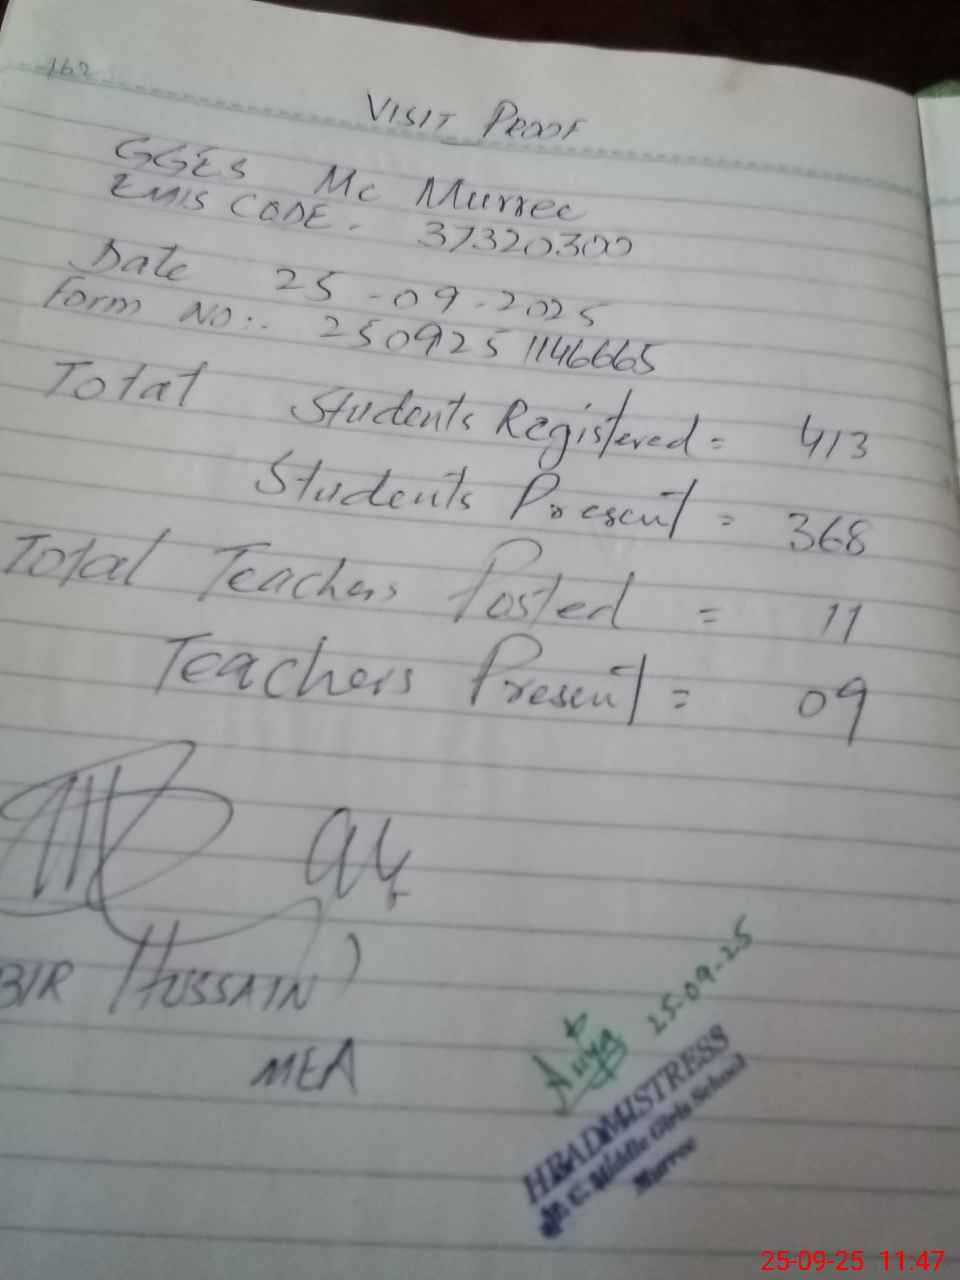 162
VISIT PROOF
GGES MC Murree
EMIS CODE. 37320300
Date 25-09-2025
Form NO:. 250925 1146665
Total Students Registered = 413
Students Present = 368
Total Teachers Posted = 11
Teachers Present = 09
BIR HUSSAIN)
MEA
25-09-25
HEADMISTRESS
Middle Girls School
Murree
25-09-25 11:47